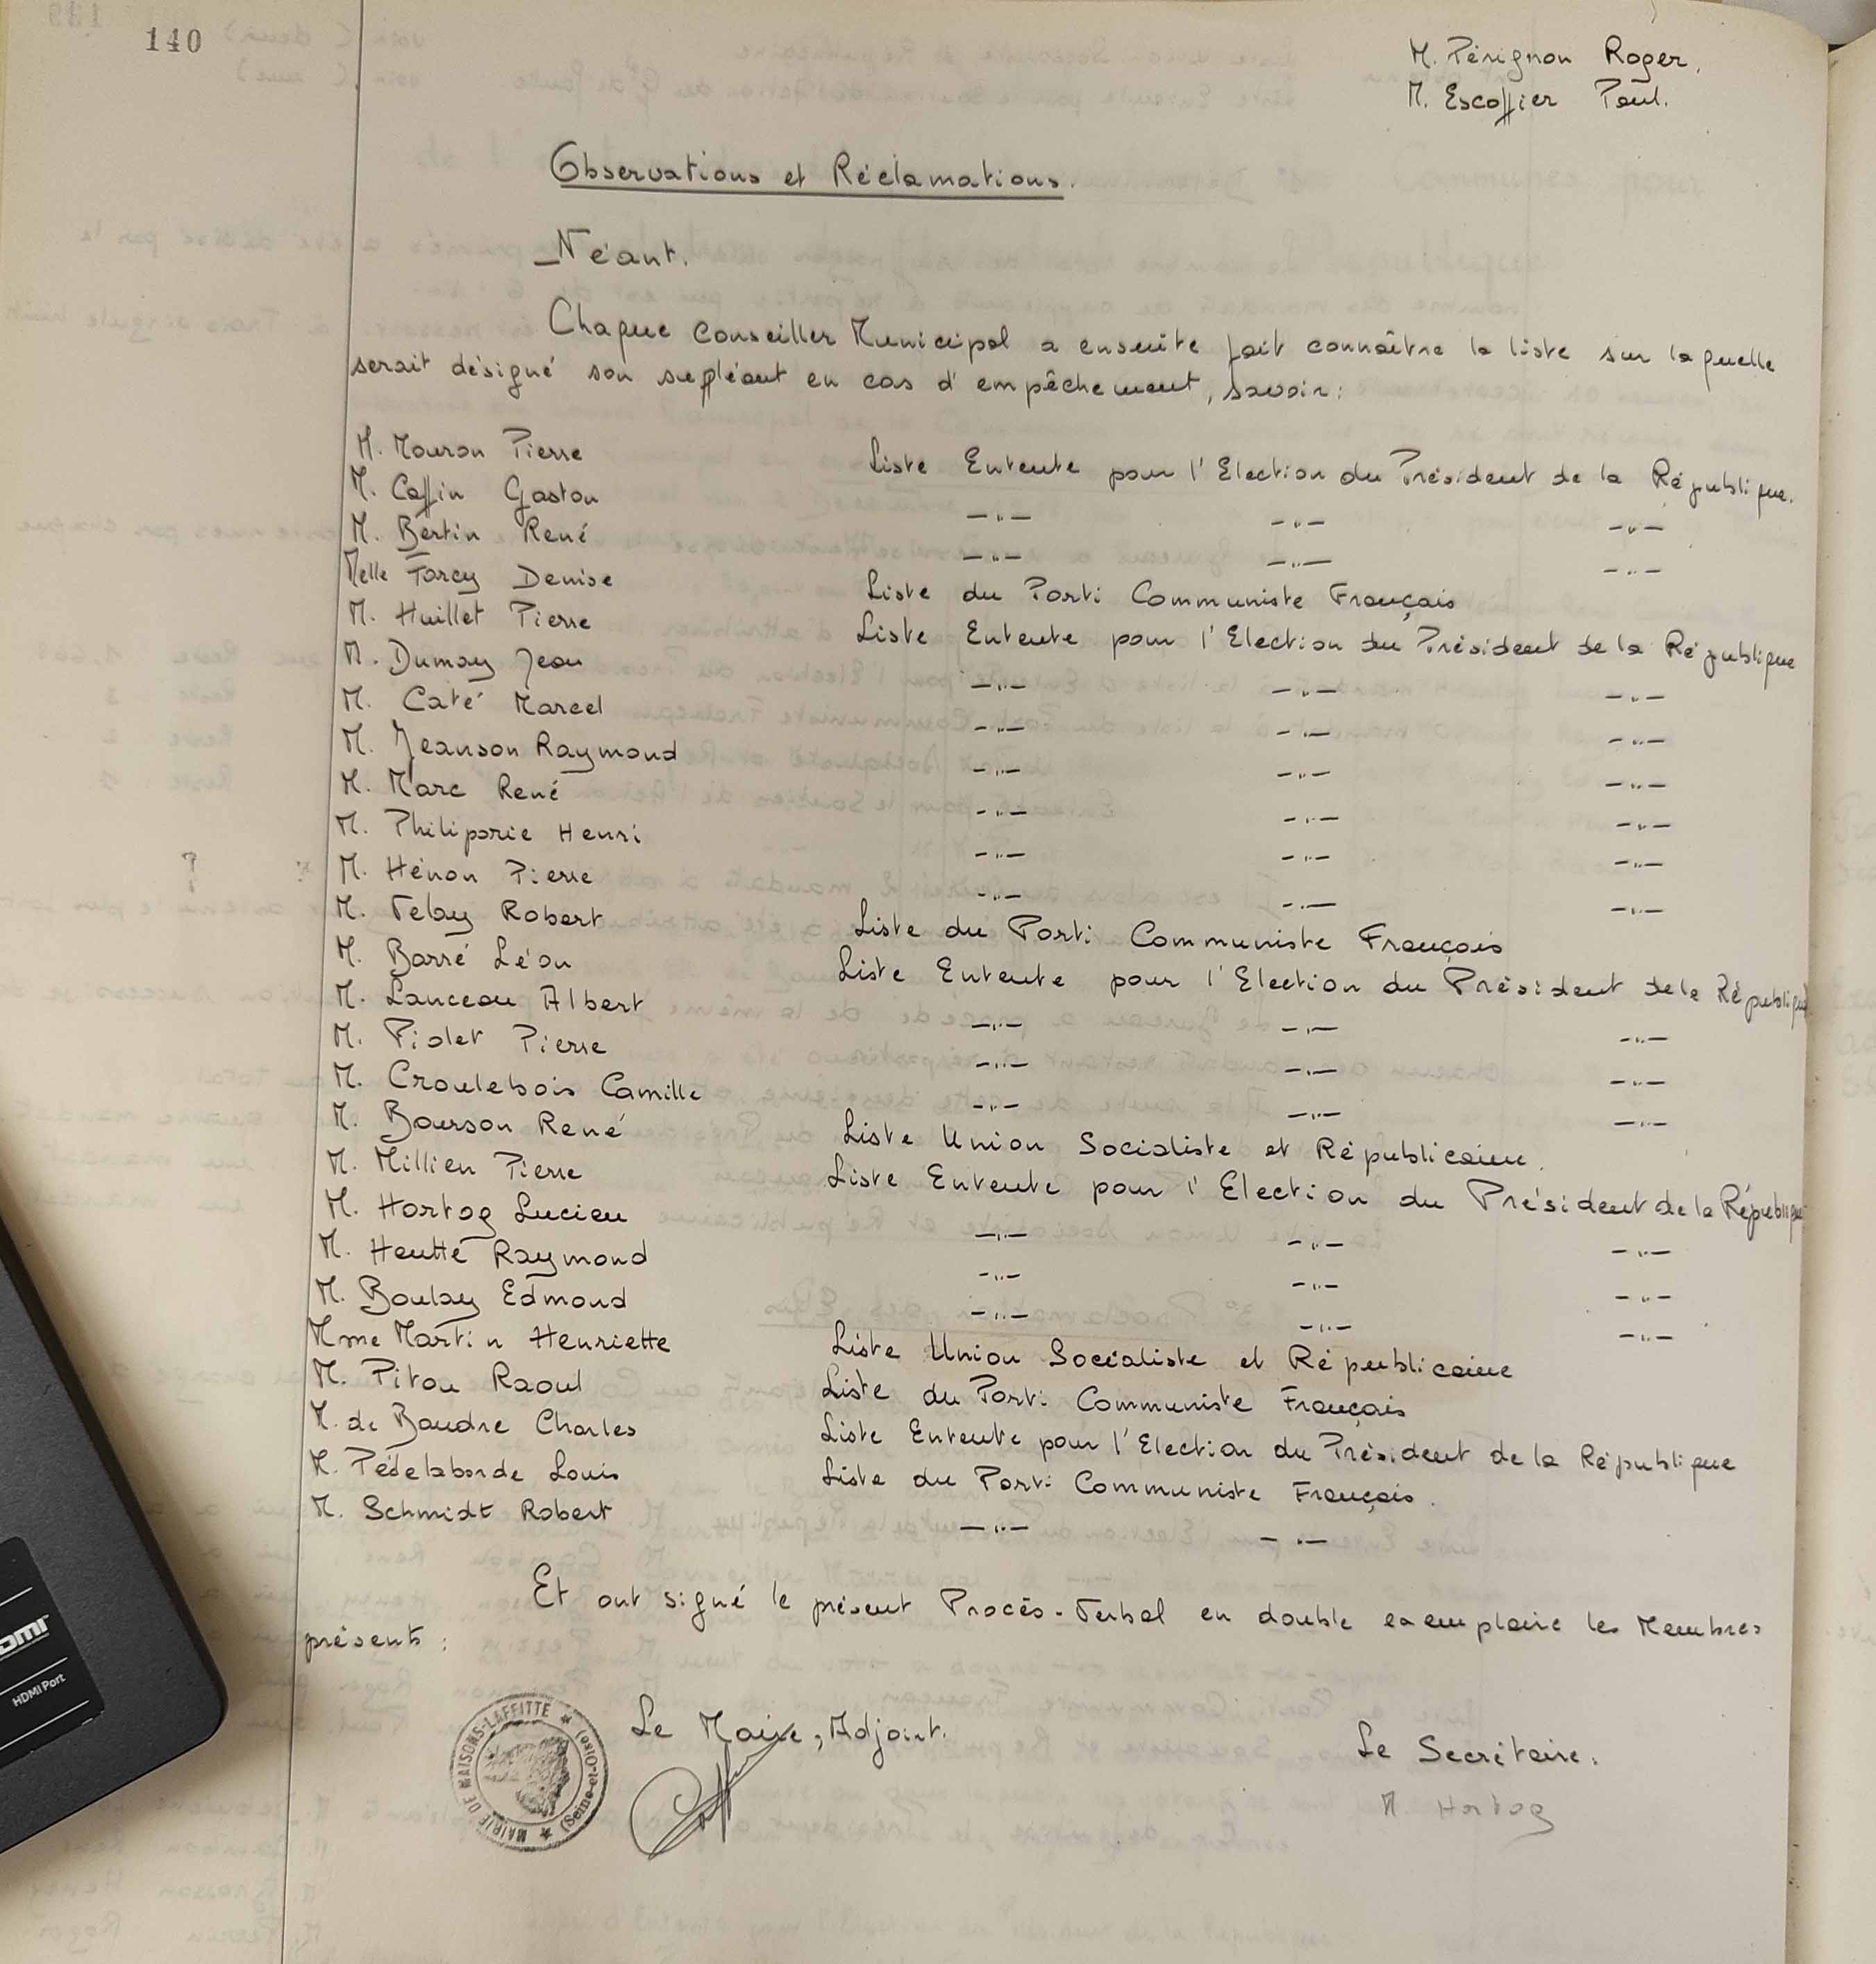 140
M. Pérignon Roger.
M. Escoffier Paul.
Observations et Réclamations.
Néant.
Chaque Conseiller Municipal a ensuite fait connaître la liste sur laquelle
serait désigné son suppléant en cas d'empêchement, savoir :
M. Mouron Pierre Liste Entente pour l'Election du Président de la République.
M. Caffin Gaston -"- -"- -"-
M. Bertin René -"- -"- -"-
Melle Forcy Denise Liste du Parti Communiste Français
M. Huillet Pierre Liste Entente pour l'Election du Président de la République
M. Dumay Jean -"- -"- -"-
M. Caté Marcel -"- -"- -"-
M. Jeanson Raymond -"- -"- -"-
M. Marc René -"- -"- -"-
M. Philiporie Henri -"- -"- -"-
M. Hénon Pierre -"- -"- -"-
M. Velay Robert Liste du Parti Communiste Français
M. Barré Léon Liste Entente pour l'Election du Président de la République
M. Lanceau Albert -"- -"- -"-
M. Piolet Pierre -"- -"- -"-
M. Croulebois Camille -"- -"- -"-
M. Bourson René Liste Union Socialiste et Républicaine.
M. Millien Pierre Liste Entente pour l'Election du Président de la République
M. Hortog Lucien -"- -"- -"-
M. Heutte Raymond -"- -"- -"-
M. Boulay Edmond -"- -"- -"-
Mme Martin Henriette Liste Union Socialiste et Républicaine
M. Pitou Raoul Liste du Parti Communiste Français
M. de Baudre Charles Liste Entente pour l'Election du Président de la République
M. Pédelaborde Louis Liste du Parti Communiste Français.
M. Schmidt Robert -"- -"-
Et ont signé le présent Procès-Verbal en double exemplaire les Membres
présents :
Le Maire, Adjoint.
Le Secrétaire.
M Hortog
MAIRIE DE MAISONS-LAFFITTE
(Seine-et-Oise)
HDMI
HDMI Port